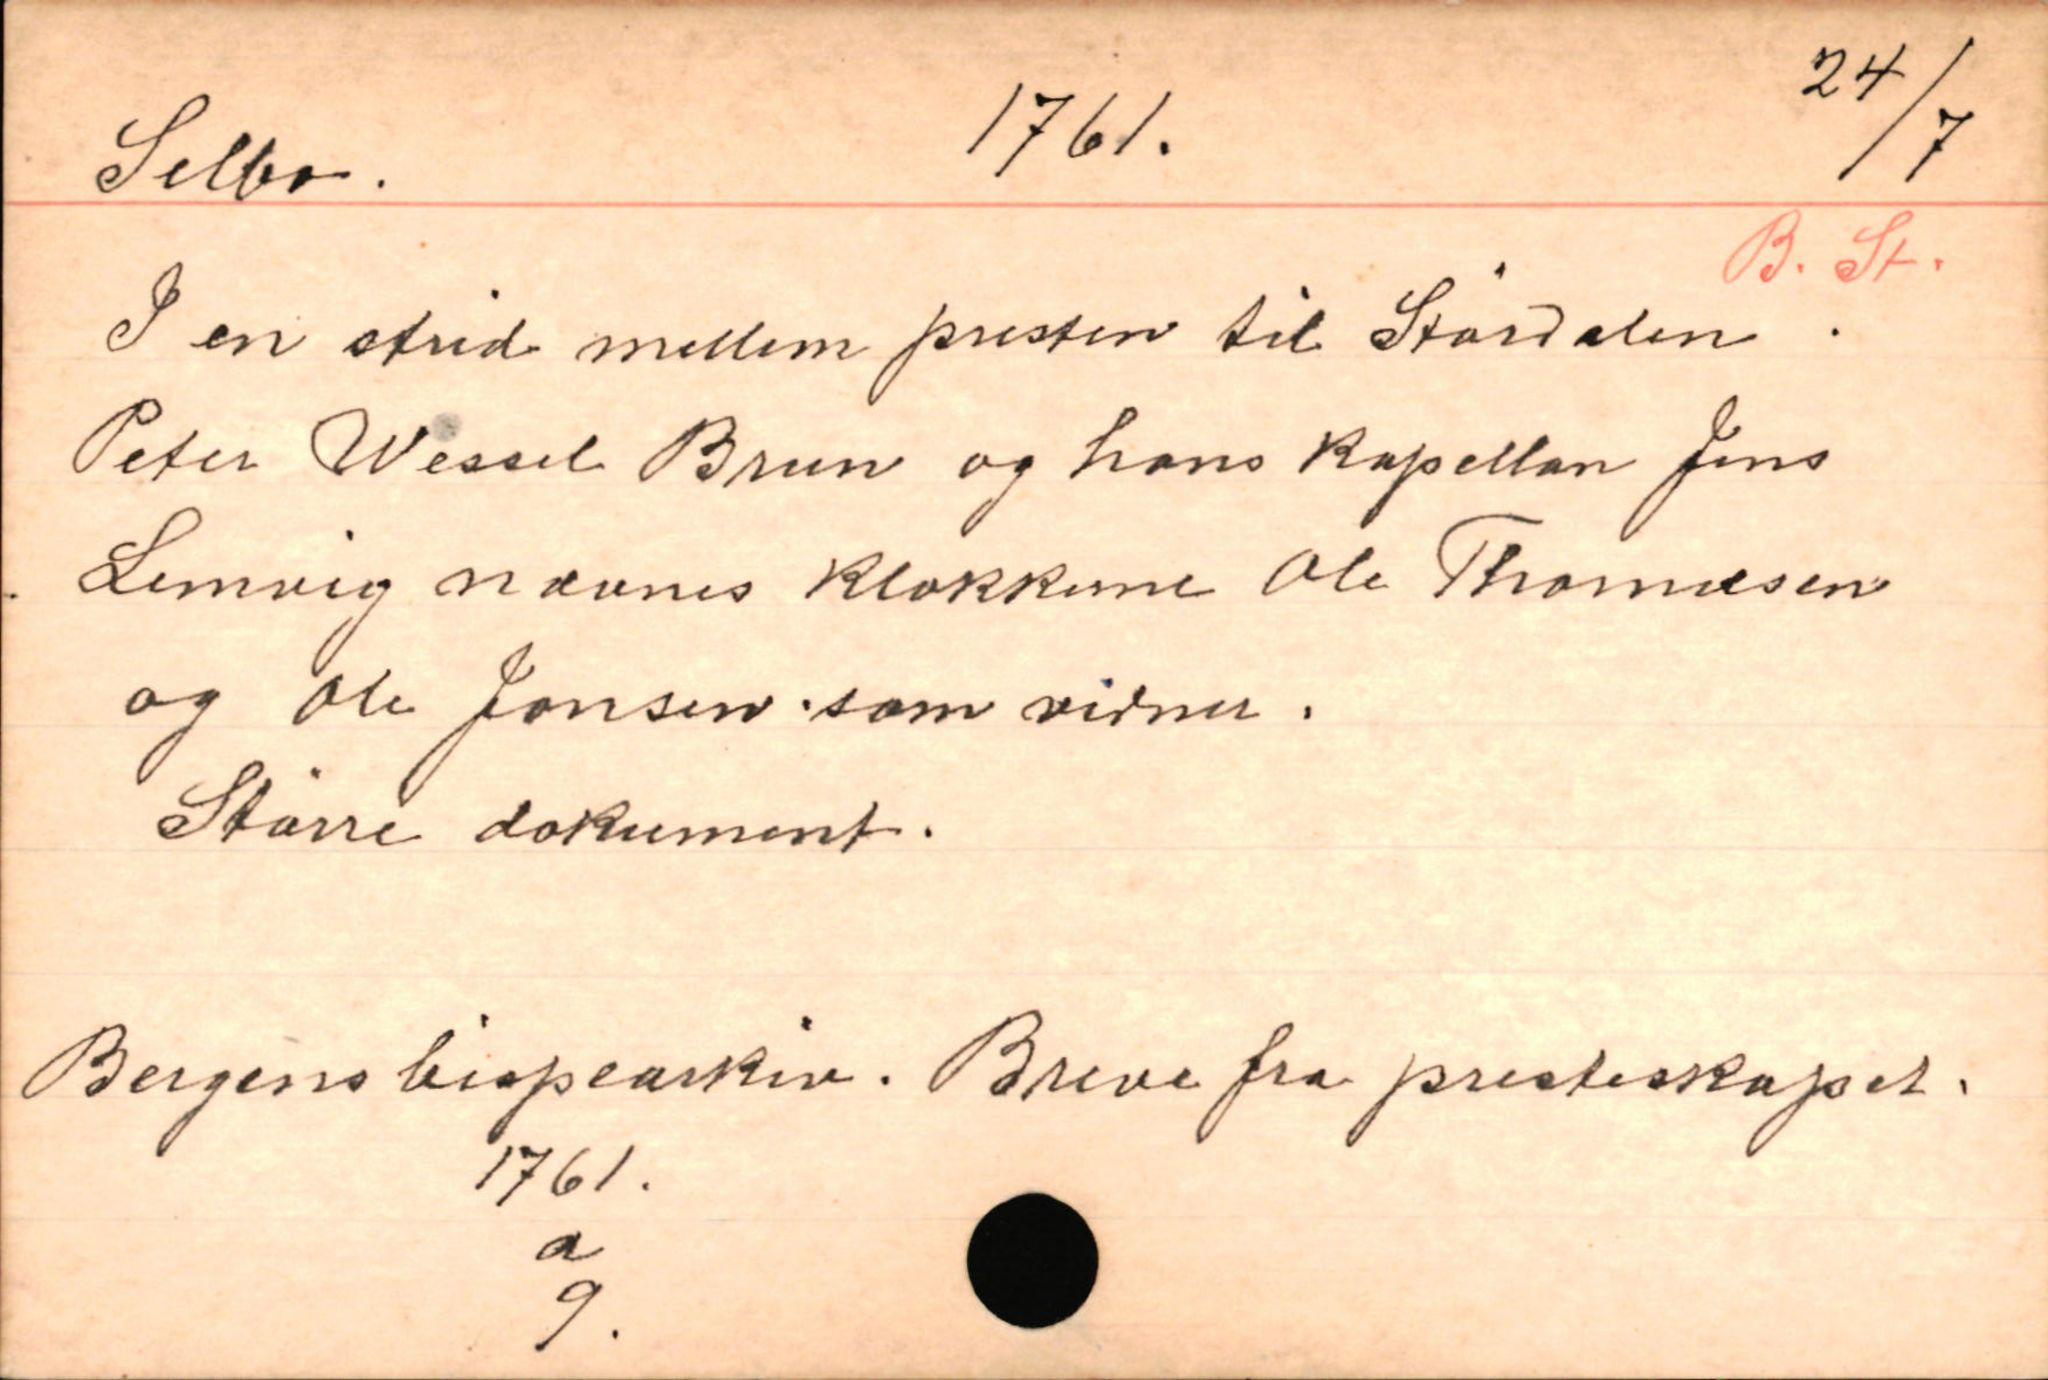 Selbo. 1761. 24/7
B. St.
I en strid mellem presten til Stördalen
Peter Wessel Brun og hans kapellan Jens
Lemvig nævnes klokkerne Ole Thomæsen
og Ole Jonsen som vidner.
Större dokument.
Bergens bispearkiv. Breve fra presteskapet.
1761.
a
9.